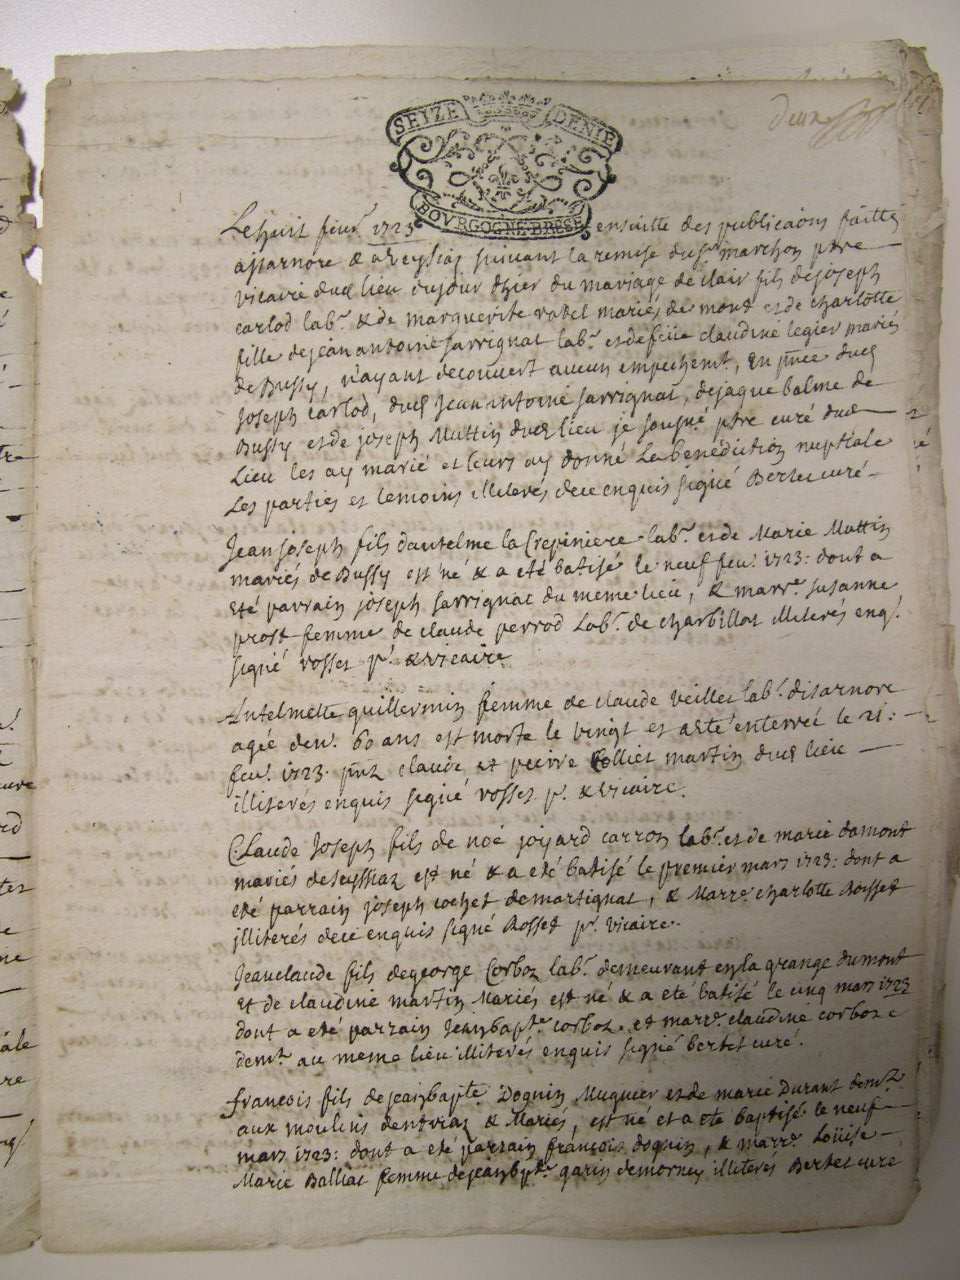 SEIZE DENIE
BOURGOGNE BRESSE
deux
Le huit feur. 1723 ensuitte des publicaõns faitte
a isarnore & a Veyssiaz suivant la remise du sr. marchon ptre
vicaire dud. lieu cejour dhier du mariage de clair fils de joseph
carlod labr. & de marguerite ratel mariés de mons et de charlotte
fille de jean antoine sarrignat labr. et de feüe claudine legier mariés
de Bussy, n'ayant decouvert aucun empechemt., En pñce dud.
joseph carlod, dud. Jean antoine sarrignat, de jaque balme de
Bussy et de joseph Mattin dud. lieu je sousné ptre curé dud.
Lieu les ay marié et leurs ay donné la benédiction nuptiale
Les parties et temoins illiterés de ce enquis signé Bertet curé
Jean joseph fils d'antelme la Crepiniere labr. et de Marie Mattin
mariés de Bussy est né & a eté batisé le neuf feu. 1723: dont a
eté parrain joseph sarrignat du meme lieu, & marre. susanne
prost femme de claude perrod Labr. de charbillat illiterés enq.
signé rosset pr. & vicaire
Antelmette guillermin femme de claude veillet labr. disarnore
agée denv. 60 ans est morte le vingt et a eté enterreé le 21:
feu. 1723. pñts claude et peirre Colliet martin dud. lieu
illiterés enquis signé rosset pr. & vicaire.
Claude Joseph fils de noé joyard carron labr. et de marie damont
mariés de seyssiaz est né & a eté batisé le premier mars 1723: dont a
eté parrain joseph cochet de martignat, & Marre. charlotte Rosset
illiterés de ce enquis signé Rosset pr. vicaire.
Jean claude fils de george Corboz labr. demeurant en la grange du mont
Et de claudine martin Mariés est né & a eté batisé le cinq mars 1723
dont a eté parrain Jean bapte. corboz, et marre. claudine corboz
demt. au meme lieu illiterés enquis signé bertet curé.
francois fils de jean bapte. Doguin Mugnier et de marie Durant demts.
aux moulins dentriaz & Mariés, est né et a eté baptisé le neuf
mars 1723: dont a eté parrain françois doguin, & marre. Loüise
Marie Balliat femme de jean bpte. garin de mornay illiterés Bertet cure